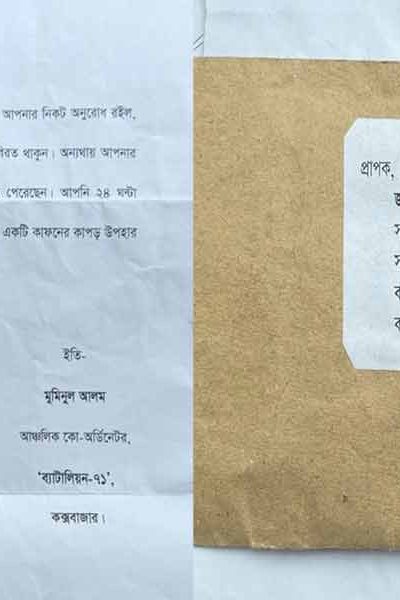 আপনার নিকট অনুরোধ রইল,
বিরত থাকুন। অন্যথায় আপনার
পেরেছেন। আপনি ২৪ ঘন্টা
একটি কাফনের কাপড় উপহার
ইতি-
মুমিনুল আলম
আঞ্চলিক কো-অর্ডিনেটর,
‘ব্যাটালিয়ন-৭১’,
কক্সবাজার।
প্রাপক,